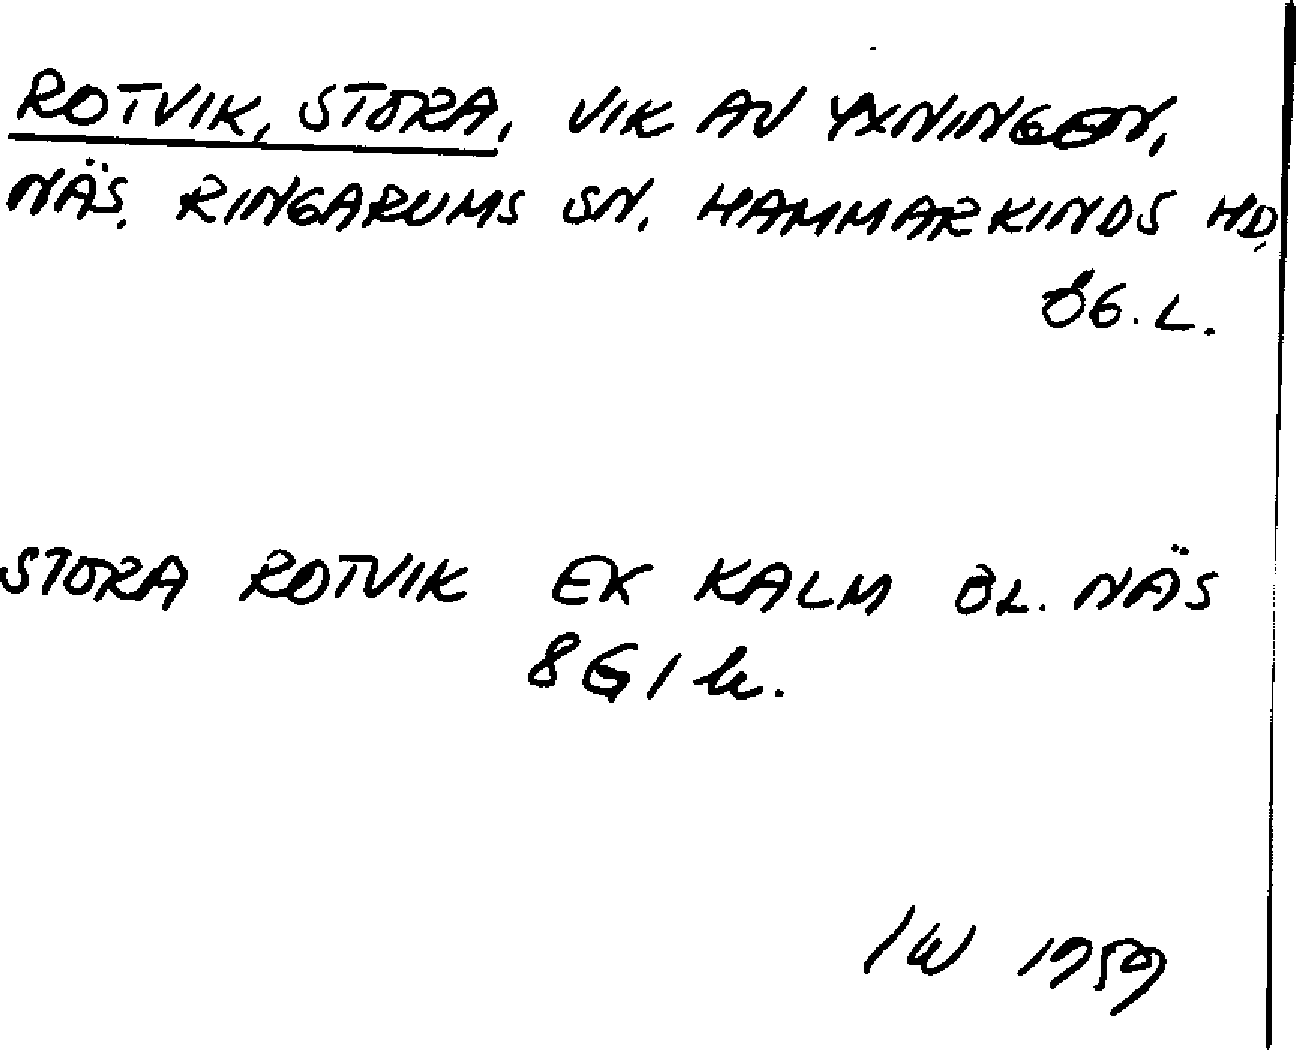 ROTVIK, STORA, VIK AV YXNINGEN,
NÄS. RINGARUMS SN. HAMMARKINDS HD,
ÖG. L.
STORA ROTVIK EK KALM BL. NÄS
8G1k.
IW 1959